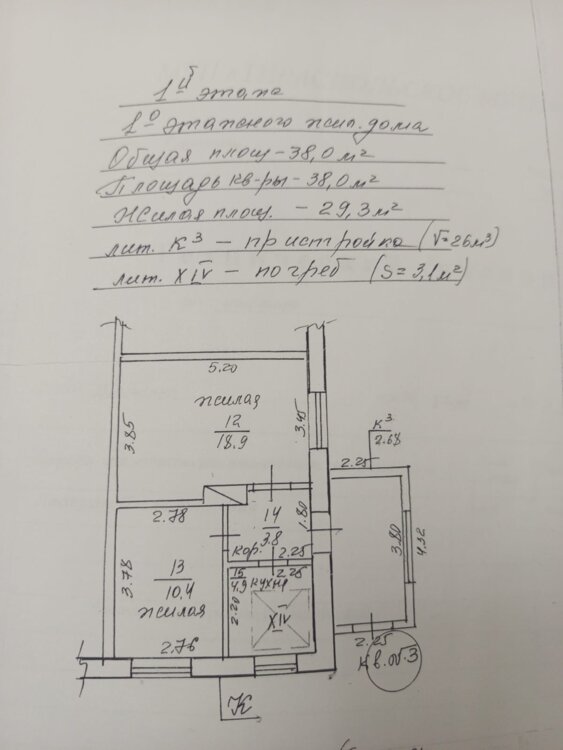 1й этаж
1о этажного жил. дома
Общая площ - 38,0 м²
Площадь кв-ры - 38,0 м²
Жилая площ. - 29,3 м²
лит. К³ - пристройка (V=26м³)
лит. XIV - погреб (S=3,1м²)
5.20
жилая
12
18.9
3.85
3.45
К³
2.68
2.25
2.78
14
3.8
1.80
кор.
2.25
3.80
4.32
3.78
13
10,4
жилая
2.76
15
4.9
кухня
2.25
2.20
XIV
2.25
Кв.об.3
К